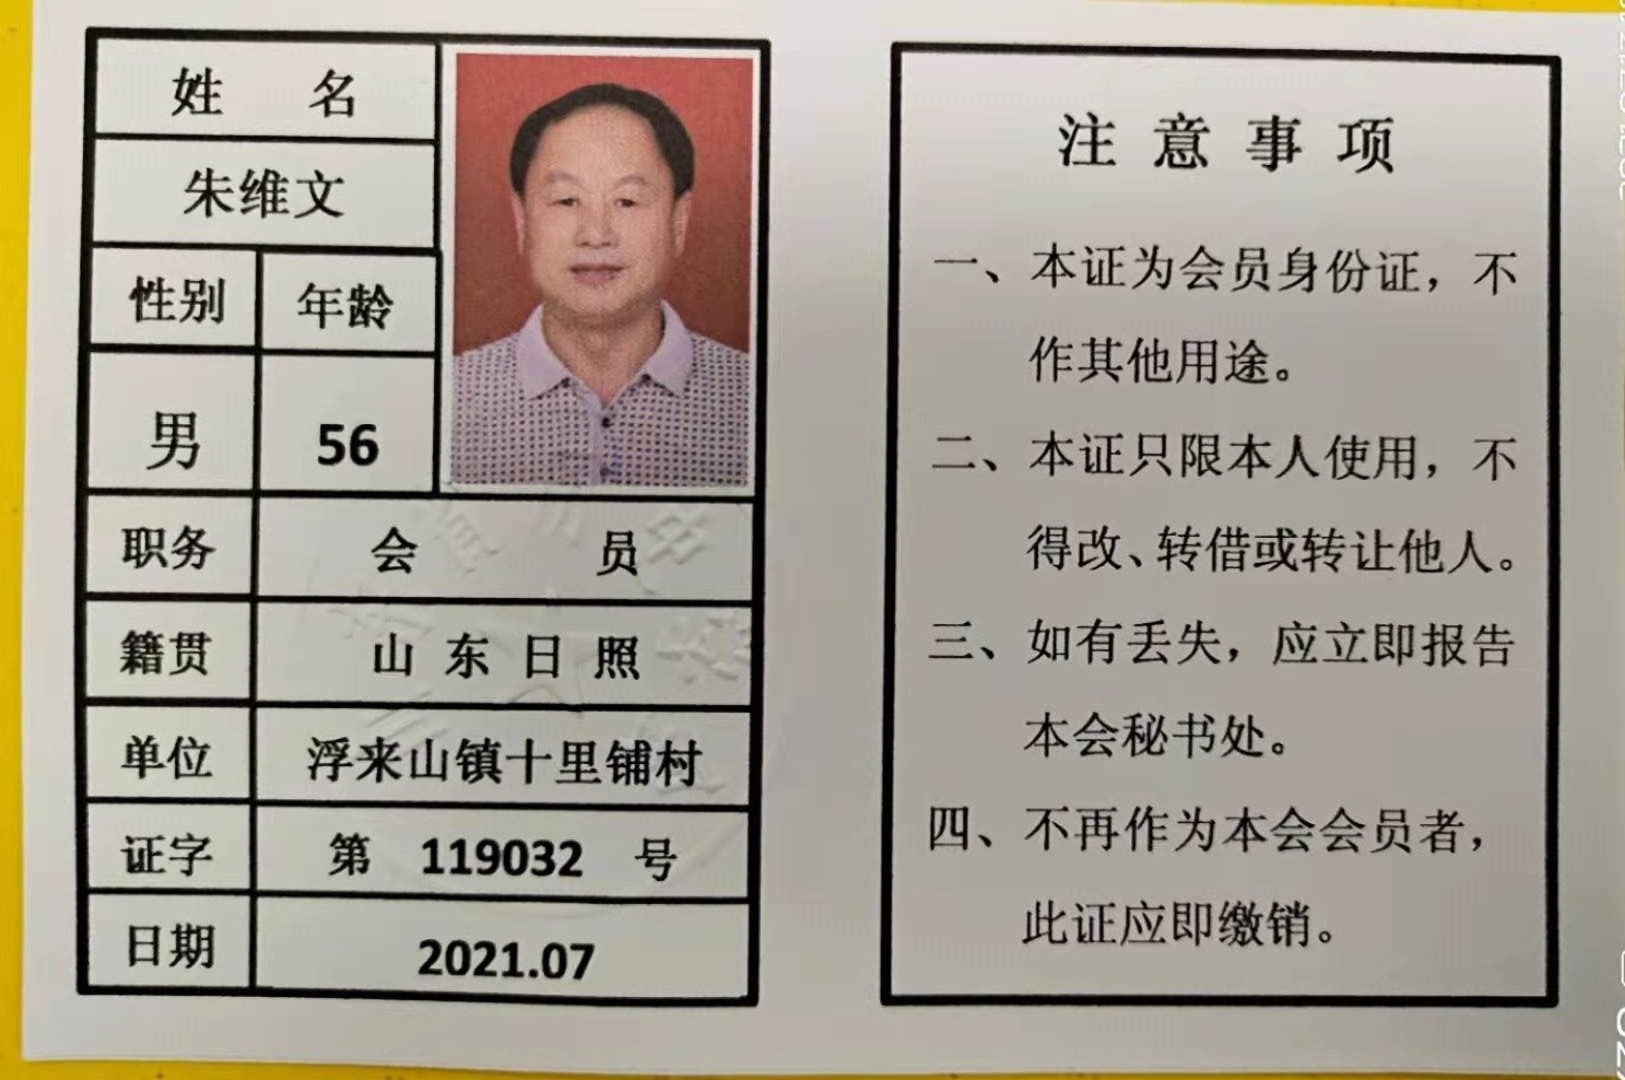 姓 名
朱维文
性别 年龄
男 56
职务 会 员
籍贯 山 东 日 照
单位 浮来山镇十里铺村
证字 第 119032 号
日期 2021.07
注 意 事 项
一、本证为会员身份证，不
作其他用途。
二、本证只限本人使用，不
得改、转借或转让他人。
三、如有丢失，应立即报告
本会秘书处。
四、不再作为本会会员者，
此证应即缴销。